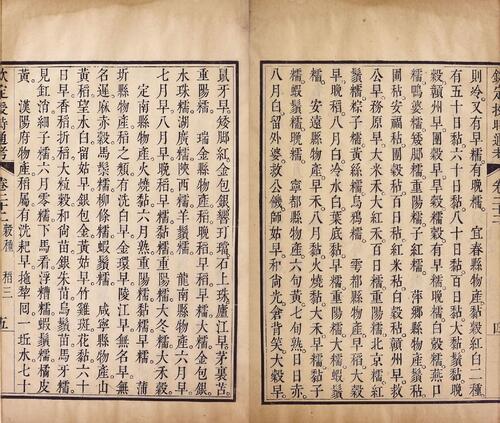 欽定授時通考 卷二十二 四
則冷。又有早糯有晚糯。 宜春縣物產黏穀紅白二種
有五十日黏六十日黏八十日黏百日黏大黏晚
穀贛州早團穀早早穀糯穀有早糯晚糯白穀糯燕口
糯鴨婆糯矮糯重陽糯子紅糯。 萍鄉縣物產鬚秥
團秥安福秥團穀秥百日秥紅米秥白穀秥贛州早救
公早務原早大禾早大紅禾百日糯重陽糯北京糯紅
鬚糯棕子糯黃絲糯烏鴉糯。 雩都縣物產早稻大穀
早晚稻八月白冷水白葉底黏早糯重陽糯大糯蝦鬚
糯。 安遠縣物產早禾八月黏大禾早糯黏子
糯蝦鬚糯。 寧都縣物產六旬黃七旬熟日日赤
八月白留外婆救公饑師姑早和尚光舍背笑大穀
鼠牙早矮脚紅金包銀響玎璫石上珠廬江早茅裏苦
重陽糯。 瑞金縣物產稻晚稻早稻早糯大糯金包銀
水珠糯湖廣糯陝西糯羊鬚糯。 龍南縣物產六月早
七月早八月早晚稻早糯黏糯重陽糯大冬糯大禾穀
定南縣物產火燒黏六月熟重陽糯黏糯早糯。 蒲
圻縣物產稻之類有洗白早金環早陵江早無名早無
名遲麻赤穀馬鬃糯柳條糯蝦鬚糯。 咸寧縣物產山
黃稻望水白留姑早銀包金黃姑早竹雞斑花黏六十
日早香稻折稻大粒穀和尚苗銀朱苗烏鬚苗馬牙糯
見缸消細子糯六月零糯下馬看浮糟糯蝦鬚糯橘皮
黃。 漢陽府物產稻屬有洗耙早拖犂回一坵水七十
欽定授時通考 卷二十二 穀種 稻三 五